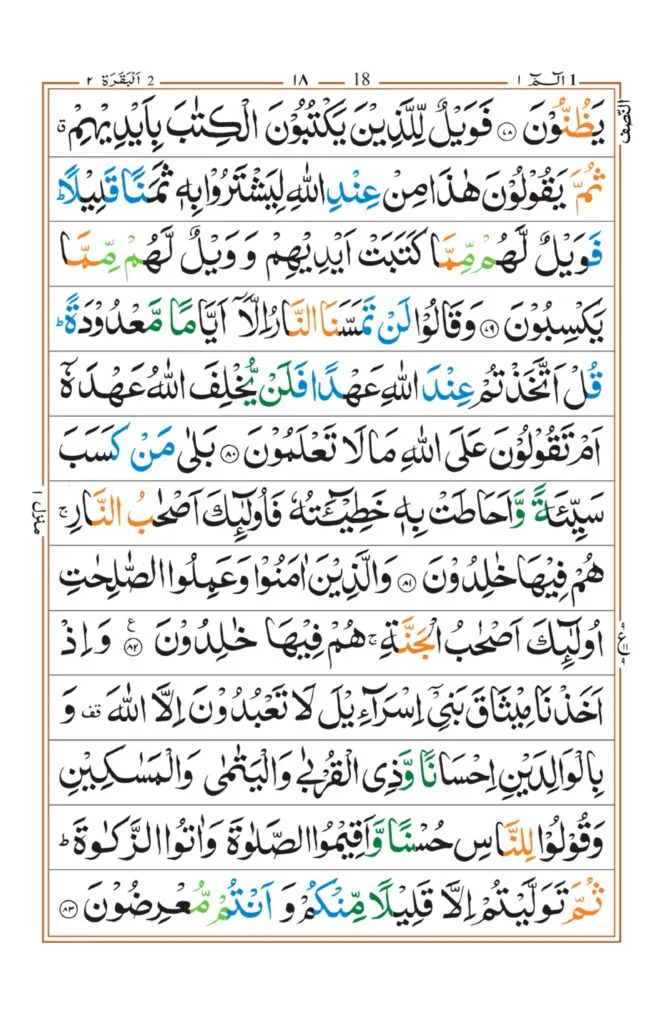 1 الٓمّٓ ١
18 ١٨
2 اَلْبَقَرَة ٢
النّصف
يَظُنُّوْنَ ۝٧٨ فَوَيْلٌ لِّلَّذِيْنَ يَكْتُبُوْنَ الْكِتٰبَ بِاَيْدِيْهِمْ ۃ
ثُمَّ يَقُوْلُوْنَ هٰذَا مِنْ عِنْدِ اللّٰهِ لِيَشْتَرُوْا بِهٖ ثَمَنًا قَلِيْلًا ؕ
فَوَيْلٌ لَّهُمْ مِّمَّا كَتَبَتْ اَيْدِيْهِمْ وَ وَيْلٌ لَّهُمْ مِّمَّا
يَكْسِبُوْنَ ۝٧٩ وَقَالُوْا لَنْ تَمَسَّنَا النَّارُ اِلَّاۤ اَيَّامًا مَّعْدُوْدَةً ؕ
قُلْ اَتَّخَذْتُمْ عِنْدَ اللّٰهِ عَهْدًا فَلَنْ يُّخْلِفَ اللّٰهُ عَهْدَهٗۤ
اَمْ تَقُوْلُوْنَ عَلَى اللّٰهِ مَا لَا تَعْلَمُوْنَ ۝٨٠ بَلٰى مَنْ كَسَبَ
سَيِّئَةً وَّاَحَاطَتْ بِهٖ خَطِيْٓـَٔتُهٗ فَاُولٰٓئِكَ اَصْحٰبُ النَّارِ ۚ
منزل ١
هُمْ فِيْهَا خٰلِدُوْنَ ۝٨١ وَالَّذِيْنَ اٰمَنُوْا وَعَمِلُوا الصّٰلِحٰتِ
اُولٰٓئِكَ اَصْحٰبُ الْجَنَّةِ ۚ هُمْ فِيْهَا خٰلِدُوْنَ ۝٨٢ ع وَاِذْ
ع
اَخَذْنَا مِيْثَاقَ بَنِيْۤ اِسْرَآءِيْلَ لَا تَعْبُدُوْنَ اِلَّا اللّٰهَ قف وَ
بِالْوَالِدَيْنِ اِحْسَانًا وَّذِي الْقُرْبٰى وَالْيَتٰمٰى وَالْمَسٰكِيْنِ
وَقُوْلُوْا لِلنَّاسِ حُسْنًا وَّاَقِيْمُوا الصَّلٰوةَ وَاٰتُوا الزَّكٰوةَ ؕ
ثُمَّ تَوَلَّيْتُمْ اِلَّا قَلِيْلًا مِّنْكُمْ وَ اَنْتُمْ مُّعْرِضُوْنَ ۝٨٣